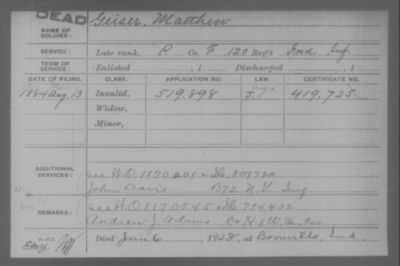 DEAD
NAME OF SOLDIER: Geiser, Matthew
SERVICE: Late rank, P Co. F, 120 Reg't Ind Inf
TERM OF SERVICE: Enlisted , 1 Discharged , 1
DATE OF FILING. CLASS. APPLICATION NO. LAW. CERTIFICATE NO.
1884 Aug. 13 Invalid, 519.898 419.723
Widow,
Minor,
ADDITIONAL SERVICES: see W.O. 1170201 &
John Davis B 72 N.Y. Inf
REMARKS: see W.O. 1170545 &
Andrew J. Adams
Died June 6, 1928, at Boonville, Ind.